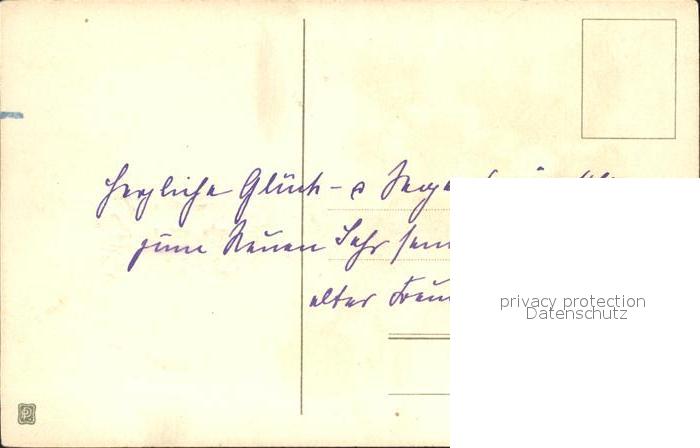 Herzliche Glück- u Segens
zum Neuen Jahr
alter
privacy protection
Datenschutz